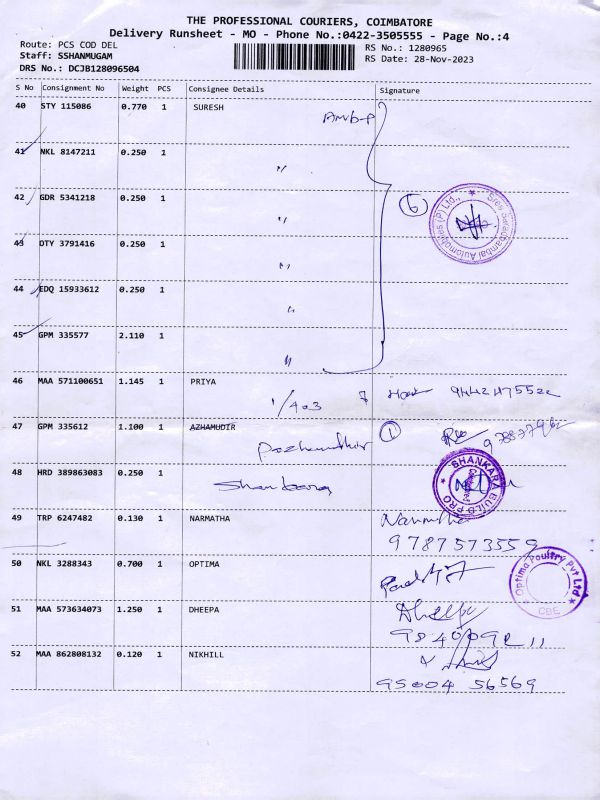 THE PROFESSIONAL COURIERS, COIMBATORE
Delivery Runsheet - MO - Phone No.:0422-3505555 - Page No.:4
Route: PCS COD DEL
RS No.: 1280965
Staff: SSHANMUGAM
RS Date: 28-Nov-2023
DRS No.: DCJB128096504
S No Consignment No Weight PCS Consignee Details Signature
40 STY 115086 0.770 1 SURESH
41 NKL 8147211 0.250 1 "
42 GDR 5341218 0.250 1 "
6
43 DTY 3791416 0.250 1 "
44 EDQ 15933612 0.250 1 "
45 GPM 335577 2.110 1 "
46 MAA 571100651 1.145 1 PRIYA
1/403
47 GPM 335612 1.100 1 AZHAMUDIR
1
48 HRD 389863083 0.250 1
SHANKARA BUILD PRO
49 TRP 6247482 0.130 1 NARMATHA
Narmatha
9787573559
50 NKL 3288343 0.700 1 OPTIMA
Optima Poultry Pvt Ltd
CBE
51 MAA 573634073 1.250 1 DHEEPA
52 MAA 862808132 0.120 1 NIKHILL
95004 56569